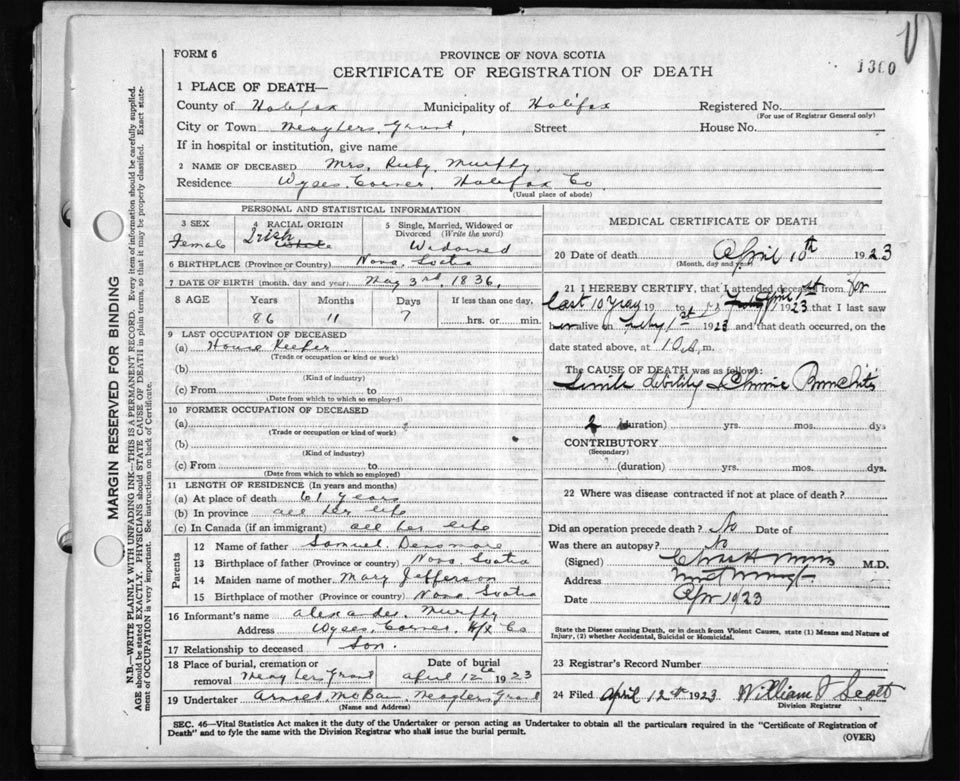 FORM 6
PROVINCE OF NOVA SCOTIA
CERTIFICATE OF REGISTRATION OF DEATH
1300
1 PLACE OF DEATH—
County of Halifax Municipality of Halifax Registered No.
(For use of Registrar General only)
City or Town Meaghers Grant, Street House No.
If in hospital or institution, give name
2 NAME OF DECEASED Mrs. Ruby Murphy
Residence Wyses Corner, Halifax Co.
(Usual place of abode)
PERSONAL AND STATISTICAL INFORMATION
3 SEX Female
4 RACIAL ORIGIN Irish
5 Single, Married, Widowed or Divorced (Write the word) Widowed
6 BIRTHPLACE (Province or Country) Nova Scotia
7 DATE OF BIRTH (month, day and year) May 3rd, 1836,
8 AGE Years Months Days If less than one day,
86 11 7 hrs. or min.
9 LAST OCCUPATION OF DECEASED
(a) House Keeper
(Trade or occupation or kind or work)
(b)
(Kind of industry)
(c) From to
(Date from which to which so employed)
10 FORMER OCCUPATION OF DECEASED
(a)
(Trade or occupation or kind of work)
(b)
(Kind of industry)
(c) From to
(Date from which to which so employed)
11 LENGTH OF RESIDENCE (In years and months)
(a) At place of death 61 years
(b) In province all her life
(c) In Canada (if an immigrant) all her life
Parents
12 Name of father Samuel Densmore
13 Birthplace of father (Province or country) Nova Scotia
14 Maiden name of mother Mary Jefferson
15 Birthplace of mother (Province or Country) Nova Scotia
16 Informant's name Alexander Murphy
Address Wyses Corner, Hfx Co
17 Relationship to deceased Son.
18 Place of burial, cremation or removal Meagher Grant
Date of burial April 12th 1923
19 Undertaker Meaghers Grant
(Name and Address)
MEDICAL CERTIFICATE OF DEATH
20 Date of death April 10th 1923
(Month, day and year)
21 I HEREBY CERTIFY, that I attended deceased from for
last 10 19 to 1923 that I last saw
h alive on 1st 1923 and that death occurred, on the
date stated above, at m.
The CAUSE OF DEATH was as follows:
Senile debility & Chronic Bronchitis
2 (duration) yrs. mos. dys
CONTRIBUTORY
(Secondary)
(duration) yrs. mos. dys.
22 Where was disease contracted if not at place of death?
Did an operation precede death? No Date of
Was there an autopsy? No
(Signed) M.D.
Address
Date Apr 1923
State the Disease causing Death, or in death from Violent Causes, state (1) Means and Nature of
Injury, (2) whether Accidental, Suicidal or Homicidal.
23 Registrar's Record Number
24 Filed April 12th 1923 William J Scott
Division Registrar
SEC. 46—Vital Statistics Act makes it the duty of the Undertaker or person acting as Undertaker to obtain all the particulars required in the "Certificate of Registration of
Death" and to fyle the same with the Division Registrar who shall issue the burial permit.
(OVER)
MARGIN RESERVED FOR BINDING
N.B.—WRITE PLAINLY WITH UNFADING INK—THIS IS A PERMANENT RECORD. Every item of information should be carefully supplied.
AGE should be stated EXACTLY. PHYSICIANS should STATE CAUSE OF DEATH in plain terms, so that it may be properly classified. Exact state-
ment of OCCUPATION is very important. See instructions on back of Certificate.